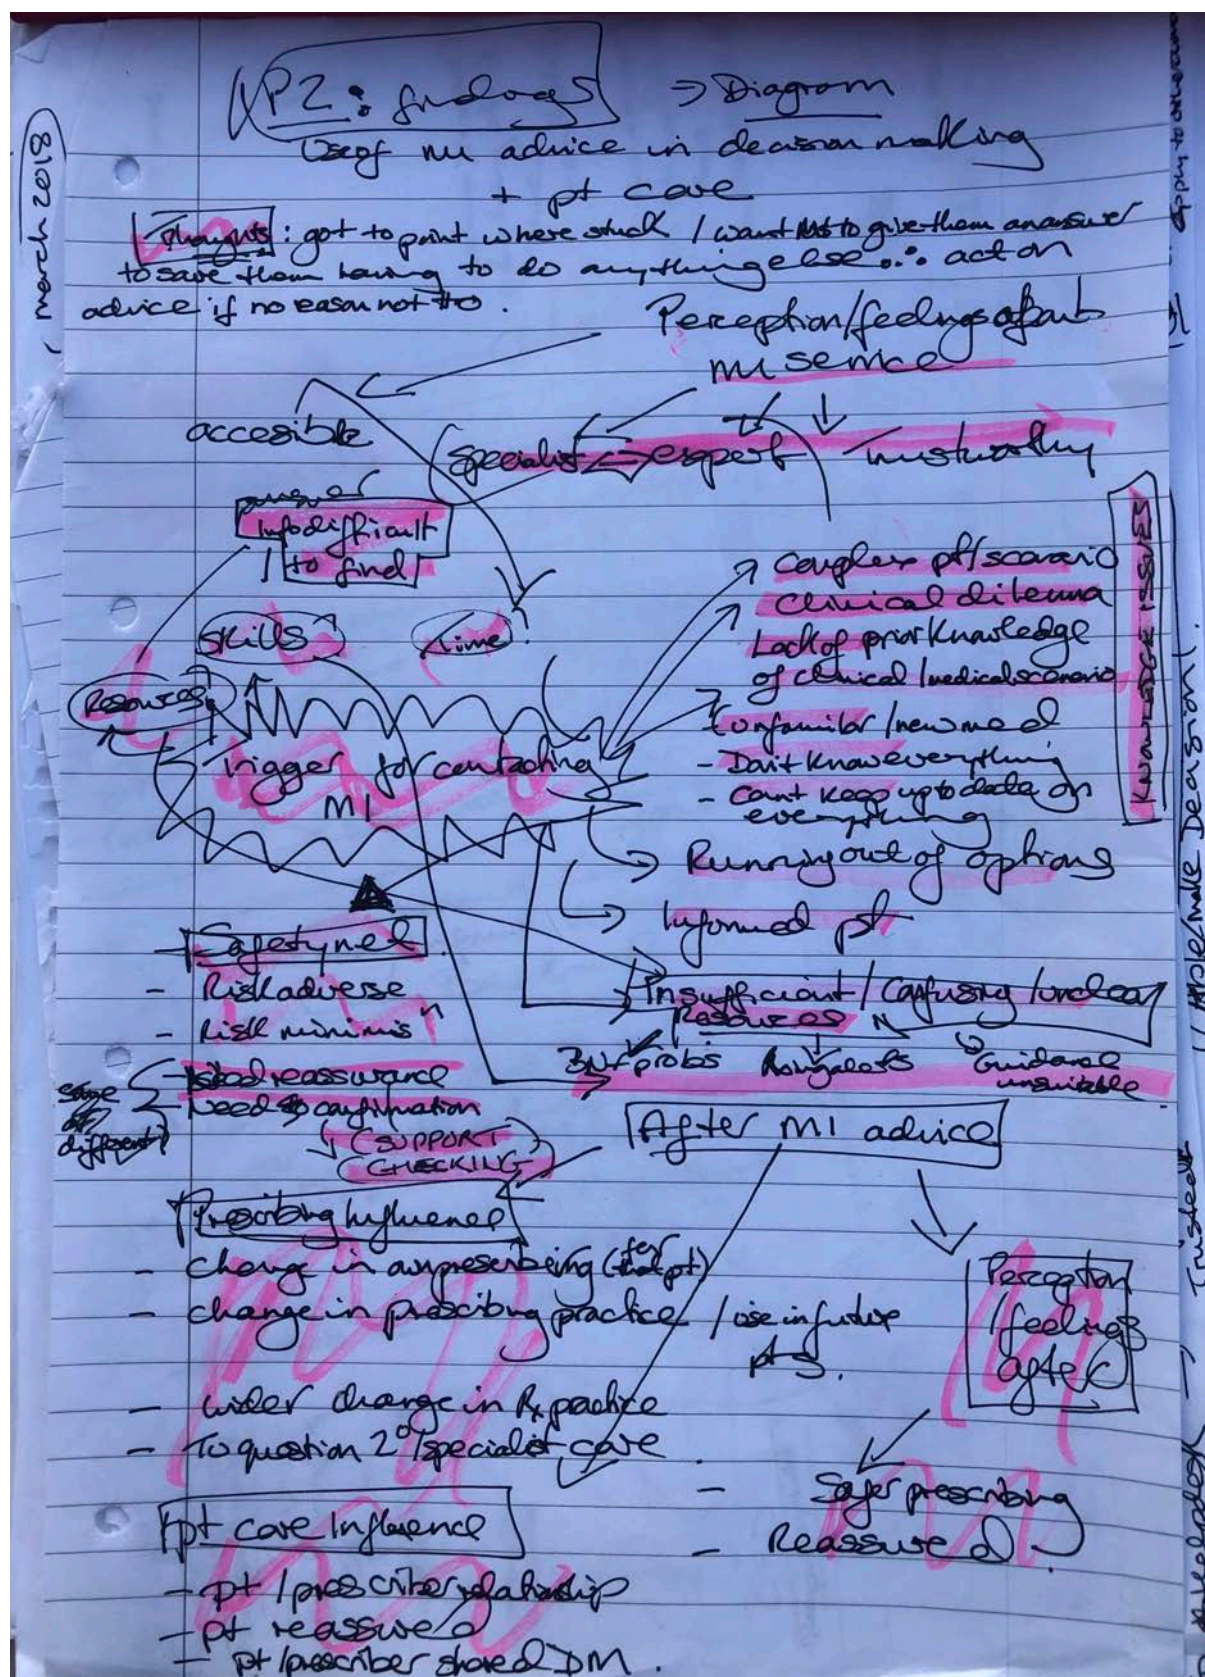 P2: findings → Diagram
Use of MI advice in decision making
+ pt care
march 2018
Thoughts: got to point where stuck / want MI to give them an answer
to save them having to do anything else ∴ act on
advice if no reason not to.
Perception/feelings about
MI service
accesible
Specialist ⇔ expert
trustworthy
answer
Info difficult
/ to find
Skills
Time
Resources
Trigger for contacting
MI
Complex pt/scenario
Clinical dilemma
Lack of prior knowledge
of clinical/medical scenario
Unfamiliar/new med
- Don't know everything
- Can't keep up to date on
everything
KNOWLEDGE ISSUES
Running out of options
Informed pt
Insufficient / Confusing / unclear
Resources
BNF probs
Guidance
unsuitable
Safety net
- Risk adverse
- Risk minimis
- need reassurance
- Need confirmation
same
or
different
(SUPPORT
CHECKING)
After MI advice
Prescribing Influence
- change in prescribing (for that pt)
- change in prescribing practice / use in future
pts.
- wider change in Rx practice
- To question 2° / specialist care
Perception
/feelings
after
- Safer prescribing
- Reassured
pt care Influence
- pt / prescriber relationship
- pt reassured
- pt / prescriber shared DM.
make Decision
Apply to